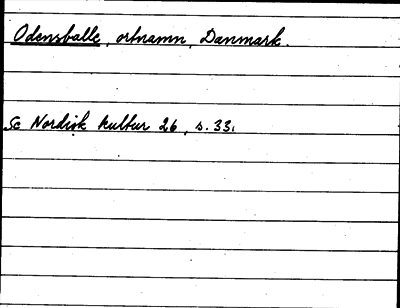 Odensballe, ortnamn, Danmark.
Se Nordisk kultur 26, s. 33.